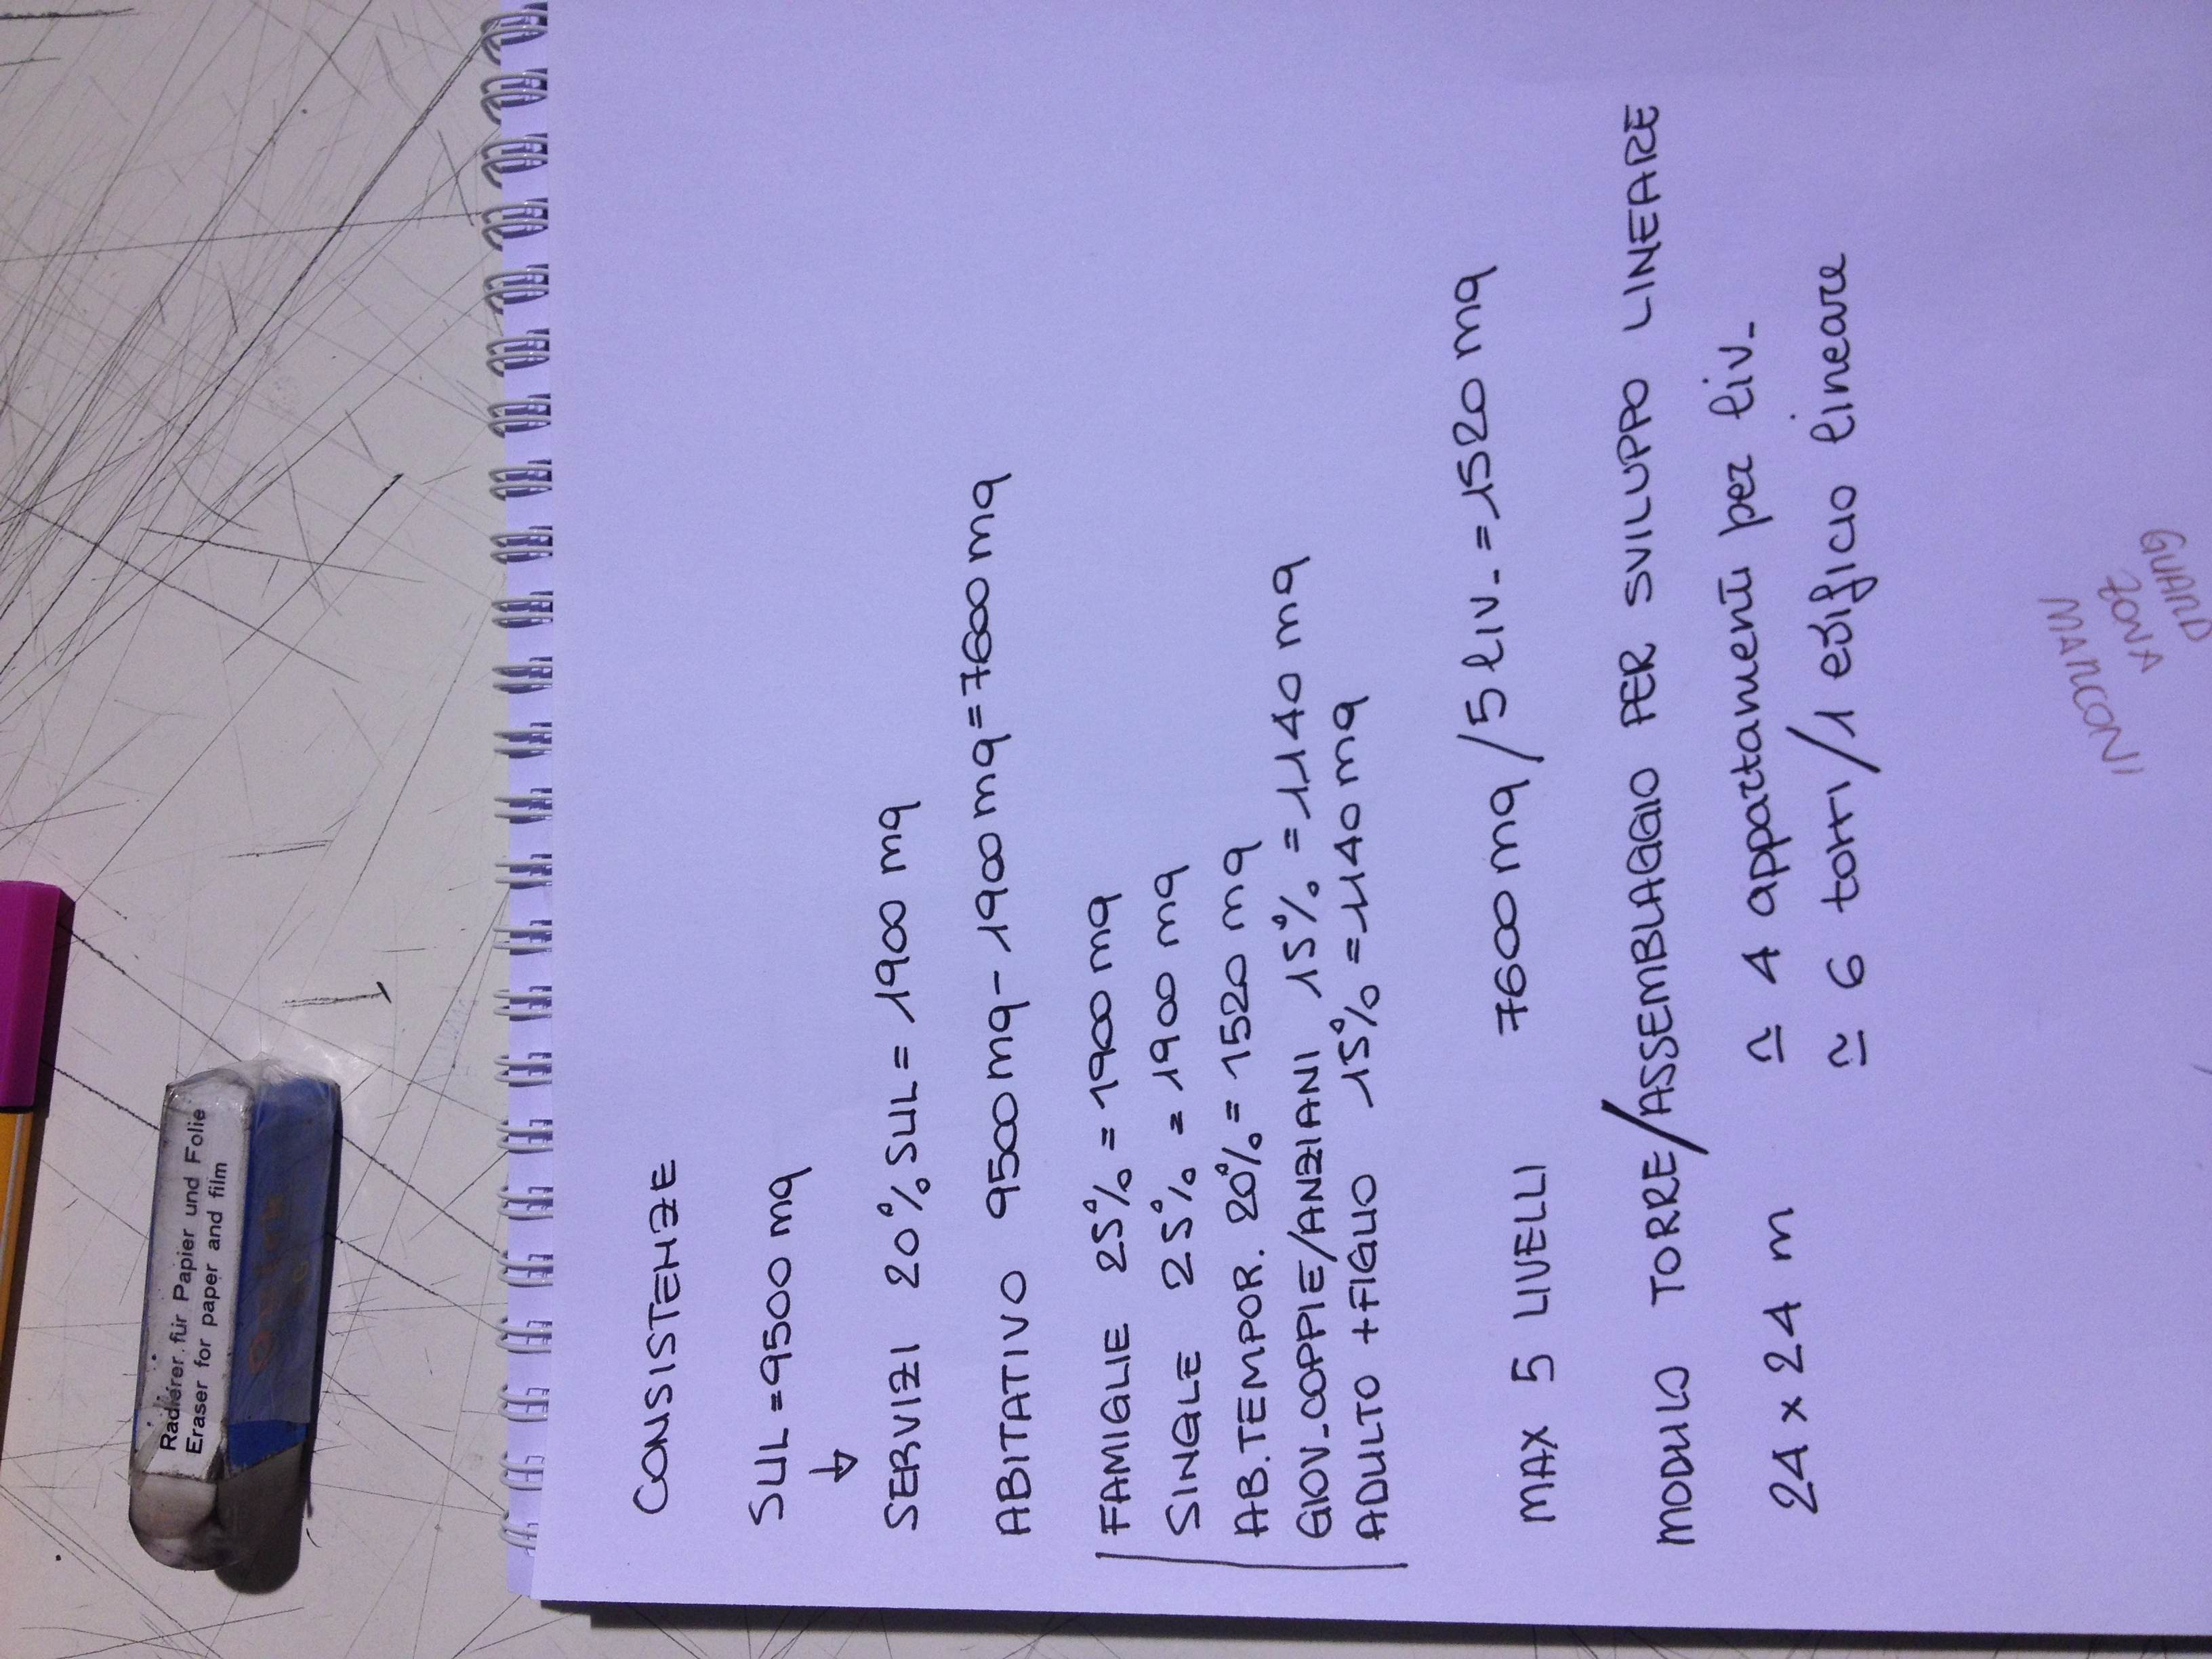 Radierer für Papier und Folie
Eraser for paper and film
CONSISTENZE
SUL = 9500 mq
SERVIZI 20% SUL = 1900 mq
ABITATIVO 9500 mq - 1900 mq = 7600 mq
FAMIGLIE 25% = 1900 mq
SINGLE 25% = 1900 mq
AB. TEMPOR. 20% = 1520 mq
GIOV_COPPIE/ANZIANI 15% = 1140 mq
ADULTO + FIGLIO 15% = 1140 mq
MAX 5 LIVELLI 7600 mq / 5 liv. = 1520 mq
MODULO TORRE/ASSEMBLAGGIO PER SVILUPPO LINEARE
24 x 24 m ≃ 4 appartamenti per liv.
≃ 6 torri/1 edificio lineare
ZONA